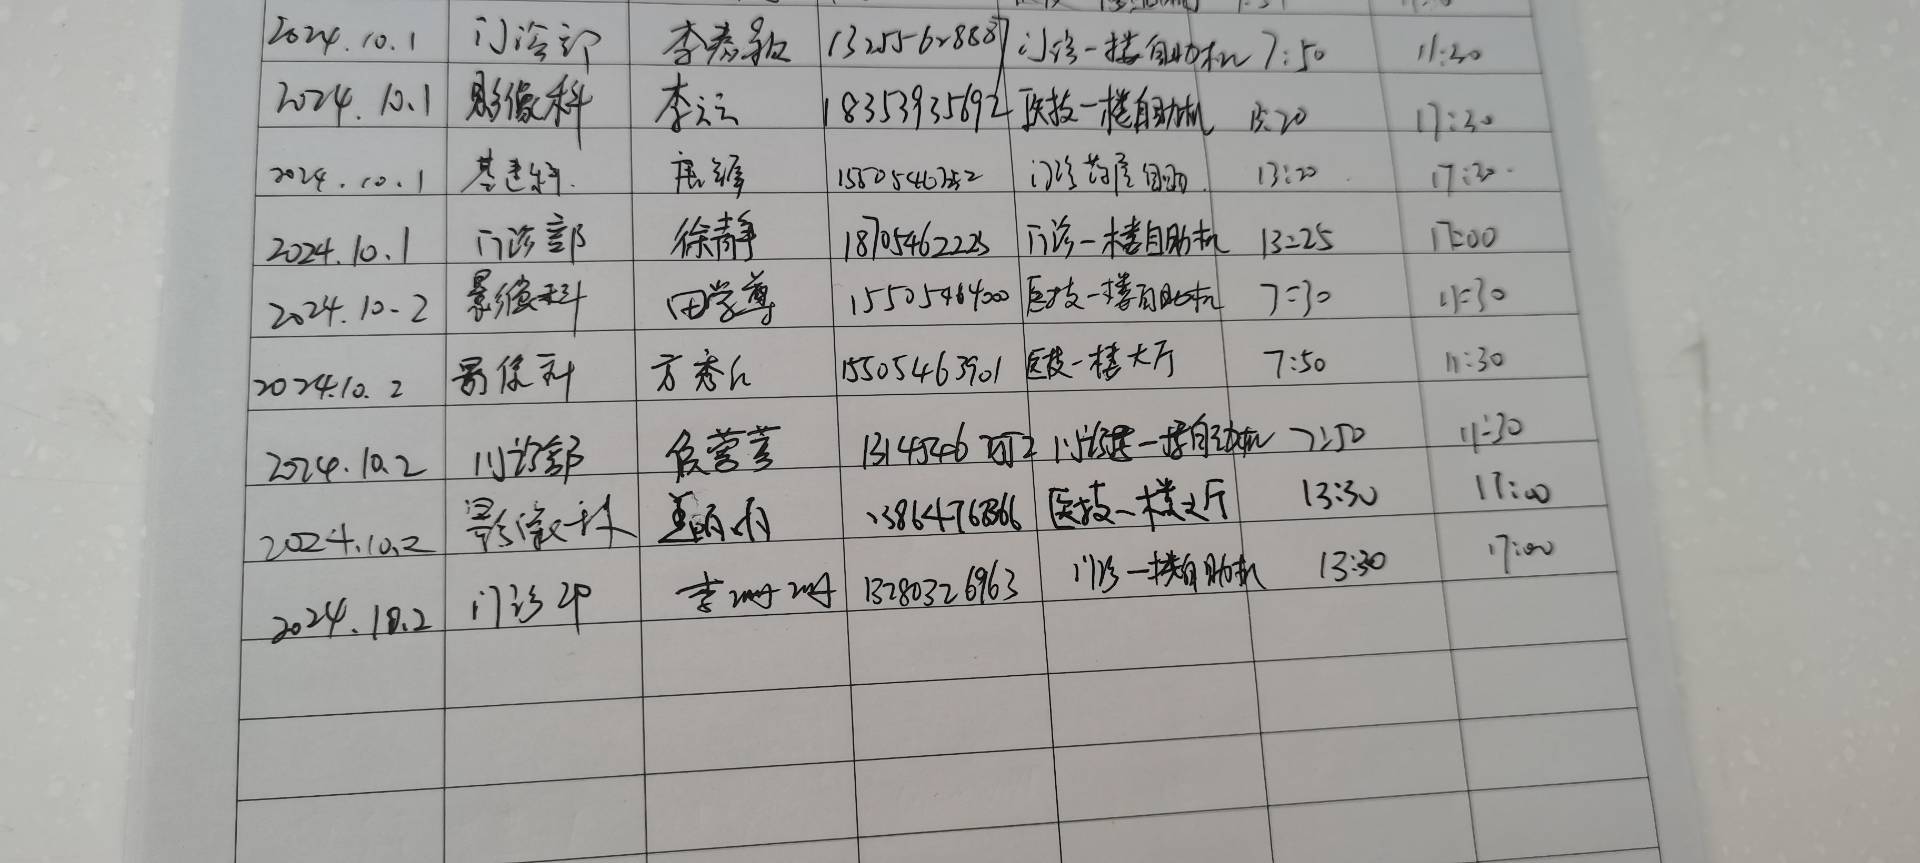 2024.10.1 门诊部 李 13255628887 门诊一楼自助机 7:50 11:30
2024.10.1 影像科 李云 18353935692 医技一楼自助机 13:20 17:30
2024.10.1 基建科. 唐峰 门诊药房自助. 13:20 17:30
2024.10.1 门诊部 徐静 18705462225 门诊一楼自助机 13:25 17:00
2024.10.2 影像科 田学尊 15505464000 医技一楼自助机 7:30 11:30
2024.10.2 影像科 方秀 15505463901 医技一楼大厅 7:50 11:30
2024.10.2 门诊部 侯营营 1314546 门诊一楼自助机 7:50 11:30
2024.10.2 影像科 13864768366 医技一楼大厅 13:30 17:00
2024.10.2 门诊部 李珊珊 13280326963 门诊一楼自助机 13:30 17:00